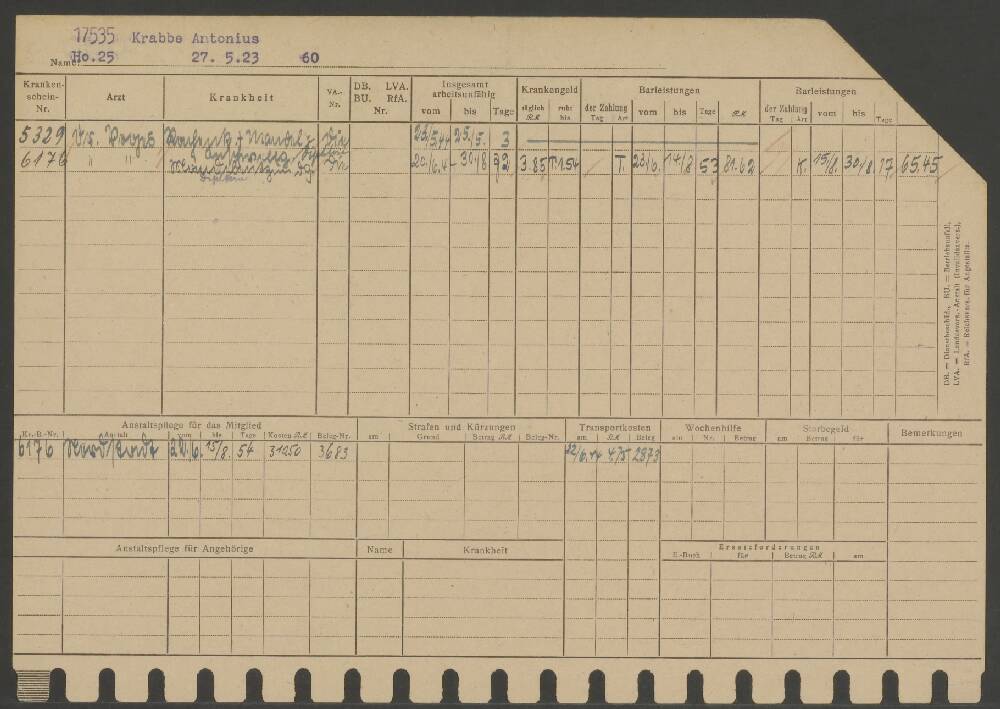 17535 Krabbe Antonius
Name: Ho.25 27. 5.23 60
Krankenschein-Nr. Arzt Krankheit VA.-Nr. DB. BU. LVA. RfA. Nr. Insgesamt arbeitsunfähig Krankengeld Barleistungen Barleistungen
vom bis Tage täglich RM ruht bis der Zahlung Tag Art vom bis Tage RM der Zahlung Tag Art vom bis Tage
5329 23/5.44 25./5. 3
6176 " " 20/6.4 - 30/8 92 3.85 T 1.54 T. 23/6. 14/8 53 81.62 K. 15/8. 30/8. 17. 65.45
DB. = Dienstbeschäd., BU. = Betriebsunfall,
LVA. = Landesvers.-Anstalt (Invalidenvers.),
RfA. = Reichsvers. für Angestellte.
Anstaltspflege für das Mitglied Strafen und Kürzungen Transportkosten Wochenhilfe Sterbegeld Bemerkungen
Kr.-B.-Nr. Anstalt vom bis Tage Kosten RM Beleg-Nr. am Grund Betrag RM Beleg-Nr. am RM Beleg am Nr. Betrag am Betrag für
6176 22./6. 15/8. 54 310.50 3683 22/6.44 4.75 2873
Anstaltspflege für Angehörige Name Krankheit Ersatzforderungen
E.-Buch für Betrag RM am